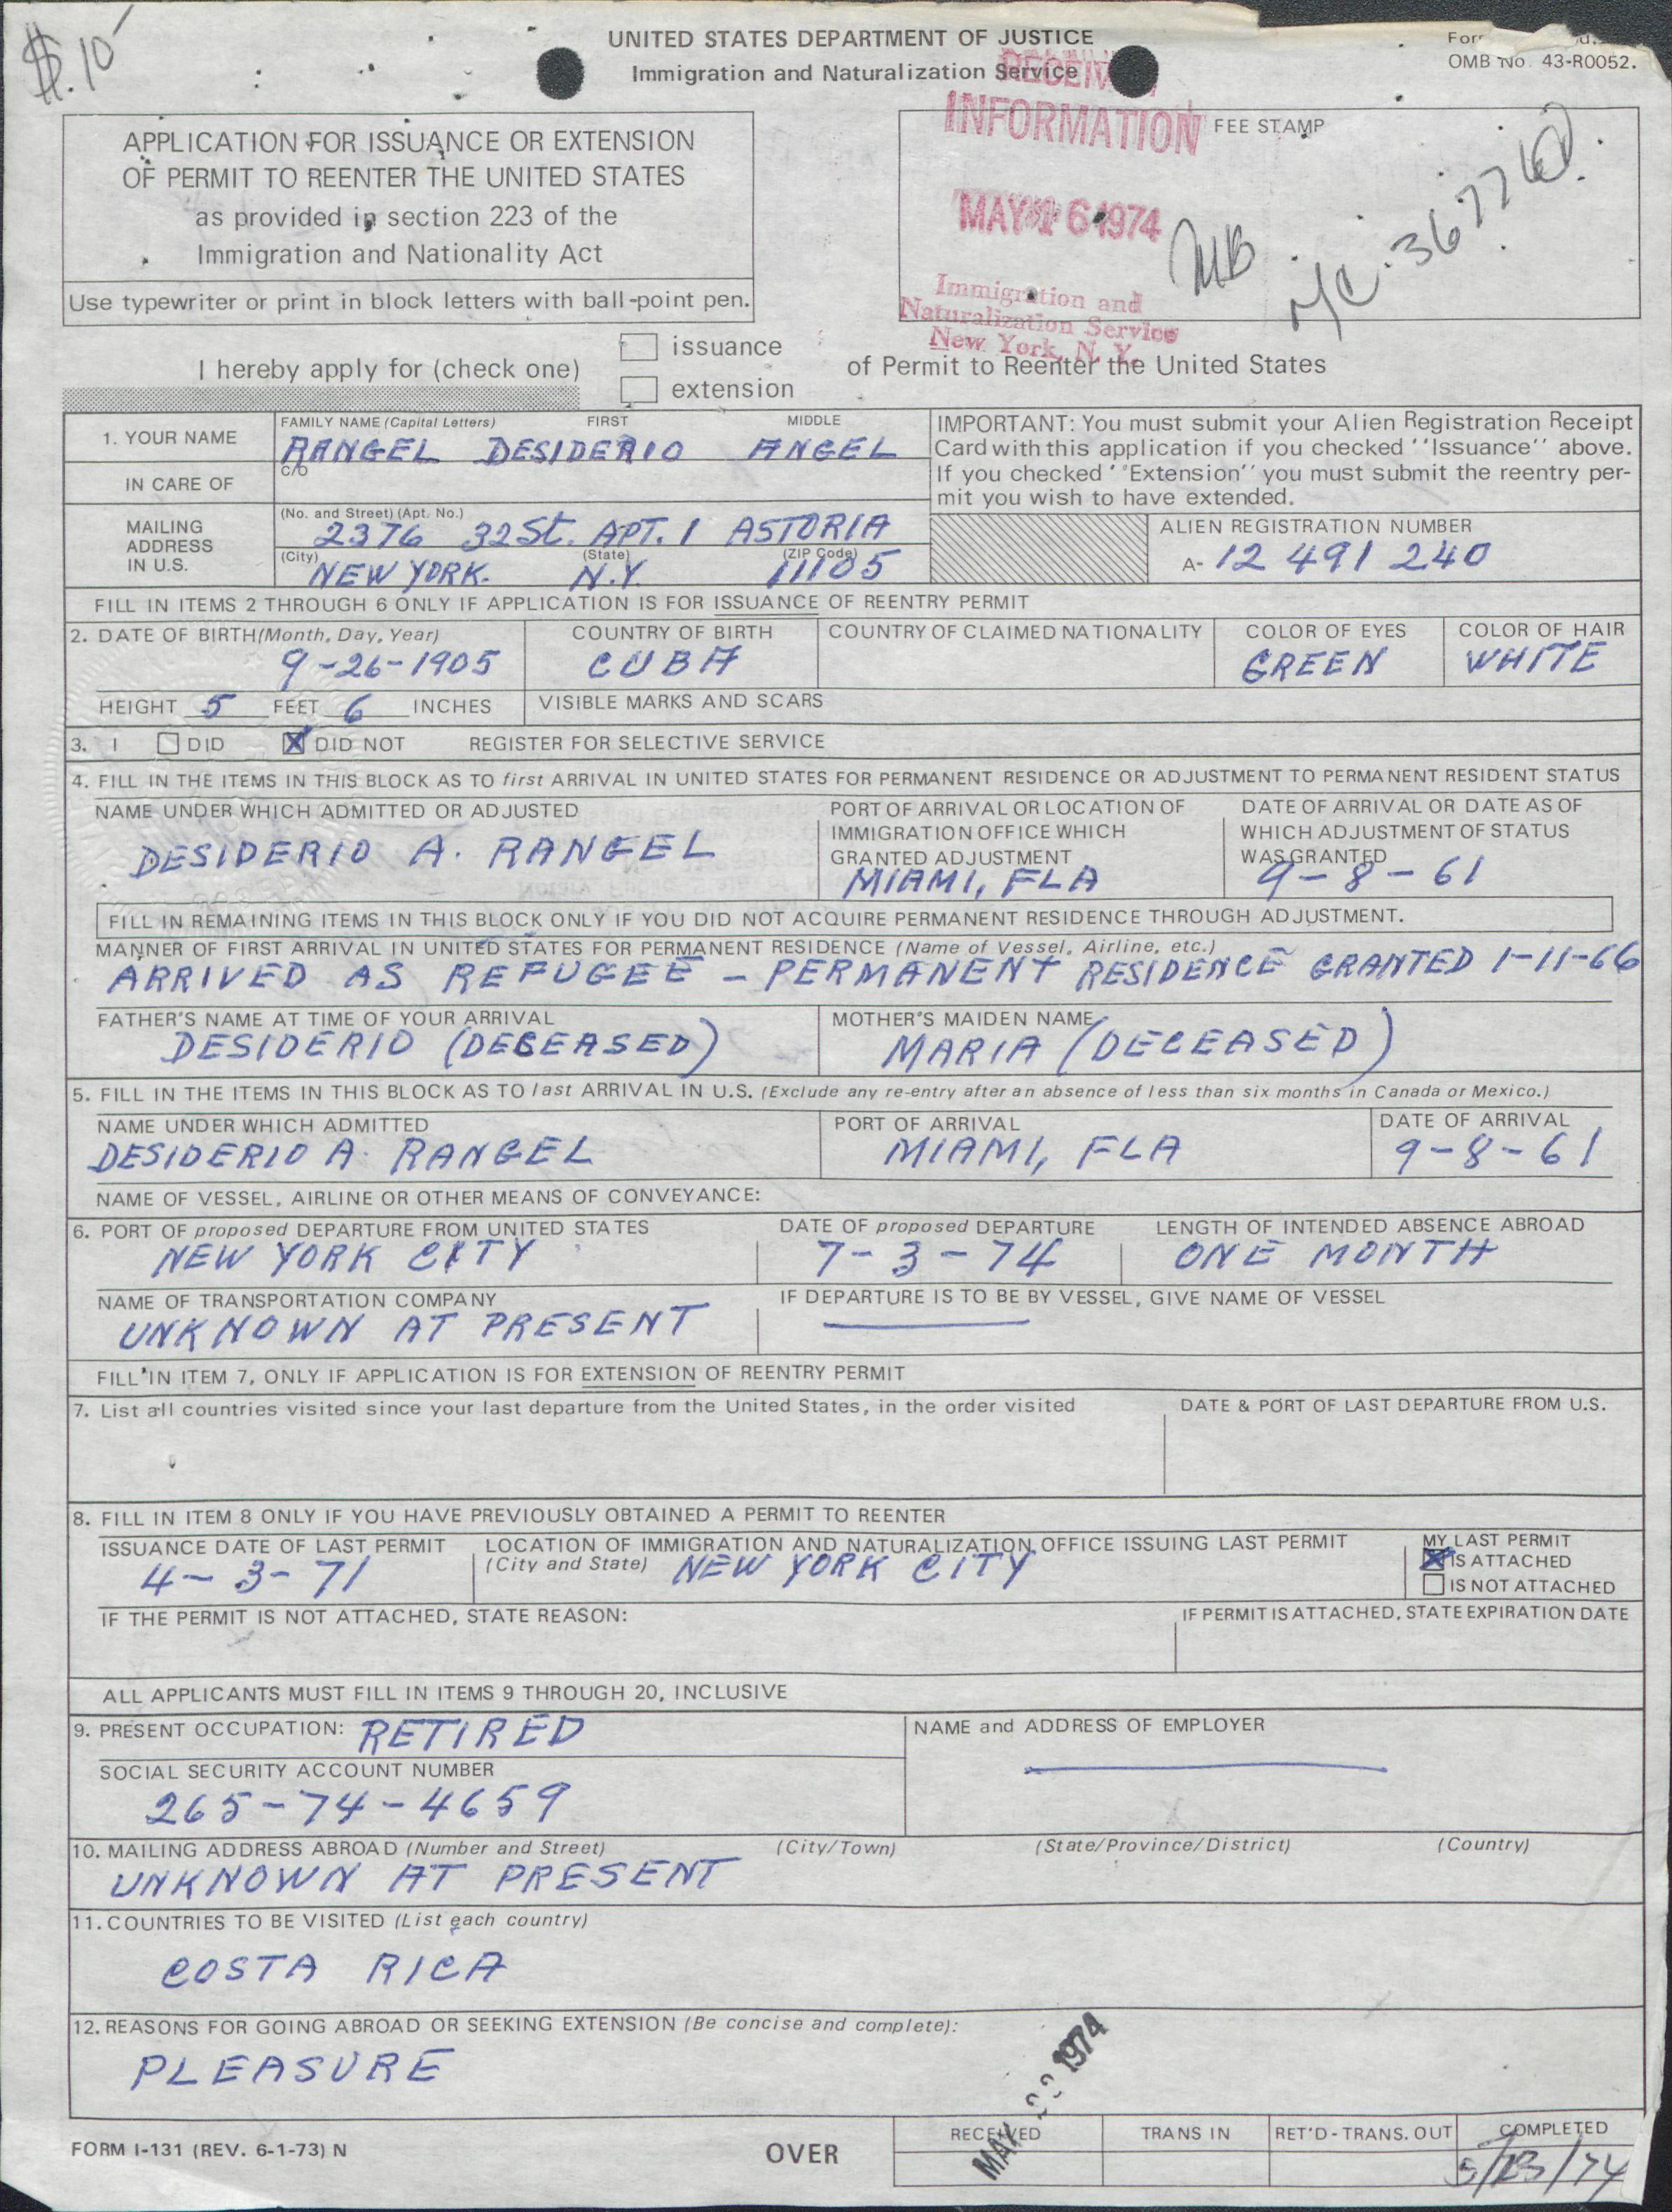 $.10
UNITED STATES DEPARTMENT OF JUSTICE
Immigration and Naturalization Service
OMB No. 43-R0052.
APPLICATION FOR ISSUANCE OR EXTENSION
OF PERMIT TO REENTER THE UNITED STATES
as provided in section 223 of the
Immigration and Nationality Act
Use typewriter or print in block letters with ball-point pen.
FEE STAMP
RECEIV
INFORMATION
MAY 16 1974
Immigration and
Naturalization Service
New York, N. Y.
MB
I hereby apply for (check one)
issuance
extension
of Permit to Reenter the United States
1. YOUR NAME
FAMILY NAME (Capital Letters) FIRST MIDDLE
RANGEL DESIDERIO ANGEL
IN CARE OF
C/O
MAILING ADDRESS IN U.S.
(No. and Street) (Apt. No.)
2376 32 St. APT. 1 ASTORIA
(City) (State) (ZIP Code)
NEW YORK. N.Y. 11105
IMPORTANT: You must submit your Alien Registration Receipt
Card with this application if you checked ''Issuance'' above.
If you checked ''Extension'' you must submit the reentry per-
mit you wish to have extended.
ALIEN REGISTRATION NUMBER
A- 12 491 240
FILL IN ITEMS 2 THROUGH 6 ONLY IF APPLICATION IS FOR ISSUANCE OF REENTRY PERMIT
2. DATE OF BIRTH (Month, Day, Year) COUNTRY OF BIRTH COUNTRY OF CLAIMED NATIONALITY COLOR OF EYES COLOR OF HAIR
9-26-1905 CUBA GREEN WHITE
HEIGHT 5 FEET 6 INCHES VISIBLE MARKS AND SCARS
3. I DID X DID NOT REGISTER FOR SELECTIVE SERVICE
4. FILL IN THE ITEMS IN THIS BLOCK AS TO first ARRIVAL IN UNITED STATES FOR PERMANENT RESIDENCE OR ADJUSTMENT TO PERMANENT RESIDENT STATUS
NAME UNDER WHICH ADMITTED OR ADJUSTED
DESIDERIO A. RANGEL
PORT OF ARRIVAL OR LOCATION OF
IMMIGRATION OFFICE WHICH
GRANTED ADJUSTMENT
MIAMI, FLA
DATE OF ARRIVAL OR DATE AS OF
WHICH ADJUSTMENT OF STATUS
WAS GRANTED
9-8-61
FILL IN REMAINING ITEMS IN THIS BLOCK ONLY IF YOU DID NOT ACQUIRE PERMANENT RESIDENCE THROUGH ADJUSTMENT.
MANNER OF FIRST ARRIVAL IN UNITED STATES FOR PERMANENT RESIDENCE (Name of Vessel, Airline, etc.)
ARRIVED AS REFUGEE - PERMANENT RESIDENCE GRANTED 1-11-66
FATHER'S NAME AT TIME OF YOUR ARRIVAL MOTHER'S MAIDEN NAME
DESIDERIO (DECEASED) MARIA (DECEASED)
5. FILL IN THE ITEMS IN THIS BLOCK AS TO last ARRIVAL IN U.S. (Exclude any re-entry after an absence of less than six months in Canada or Mexico.)
NAME UNDER WHICH ADMITTED PORT OF ARRIVAL DATE OF ARRIVAL
DESIDERIO A. RANGEL MIAMI, FLA 9-8-61
NAME OF VESSEL, AIRLINE OR OTHER MEANS OF CONVEYANCE:
6. PORT OF proposed DEPARTURE FROM UNITED STATES DATE OF proposed DEPARTURE LENGTH OF INTENDED ABSENCE ABROAD
NEW YORK CITY 7-3-74 ONE MONTH
NAME OF TRANSPORTATION COMPANY IF DEPARTURE IS TO BE BY VESSEL, GIVE NAME OF VESSEL
UNKNOWN AT PRESENT
FILL IN ITEM 7, ONLY IF APPLICATION IS FOR EXTENSION OF REENTRY PERMIT
7. List all countries visited since your last departure from the United States, in the order visited DATE & PORT OF LAST DEPARTURE FROM U.S.
8. FILL IN ITEM 8 ONLY IF YOU HAVE PREVIOUSLY OBTAINED A PERMIT TO REENTER
ISSUANCE DATE OF LAST PERMIT
4-3-71
LOCATION OF IMMIGRATION AND NATURALIZATION OFFICE ISSUING LAST PERMIT
(City and State) NEW YORK CITY
MY LAST PERMIT
X IS ATTACHED
IS NOT ATTACHED
IF THE PERMIT IS NOT ATTACHED, STATE REASON: IF PERMIT IS ATTACHED, STATE EXPIRATION DATE
ALL APPLICANTS MUST FILL IN ITEMS 9 THROUGH 20, INCLUSIVE
9. PRESENT OCCUPATION: RETIRED NAME and ADDRESS OF EMPLOYER
SOCIAL SECURITY ACCOUNT NUMBER
265-74-4659
10. MAILING ADDRESS ABROAD (Number and Street) (City/Town) (State/Province/District) (Country)
UNKNOWN AT PRESENT
11. COUNTRIES TO BE VISITED (List each country)
COSTA RICA
12. REASONS FOR GOING ABROAD OR SEEKING EXTENSION (Be concise and complete):
PLEASURE
FORM I-131 (REV. 6-1-73) N
OVER
RECEIVED TRANS IN RET'D - TRANS. OUT COMPLETED
MAY 1974
5/23/74